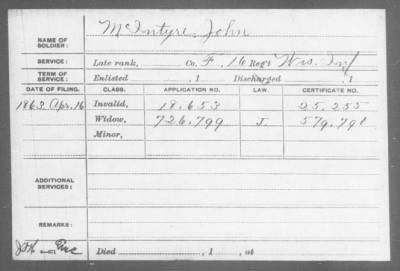 NAME OF SOLDIER: McIntyre, John
SERVICE: Late rank, Co. F, 16 Reg't Wis. Inf
TERM OF SERVICE: Enlisted , 1 Discharged , 1
DATE OF FILING. CLASS. APPLICATION NO. LAW. CERTIFICATE NO.
1863, Apr. 16 Invalid, 18.653 25.255
Widow, 726.799 J. 579.790
Minor,
ADDITIONAL SERVICES:
REMARKS:
Died , 1 , at